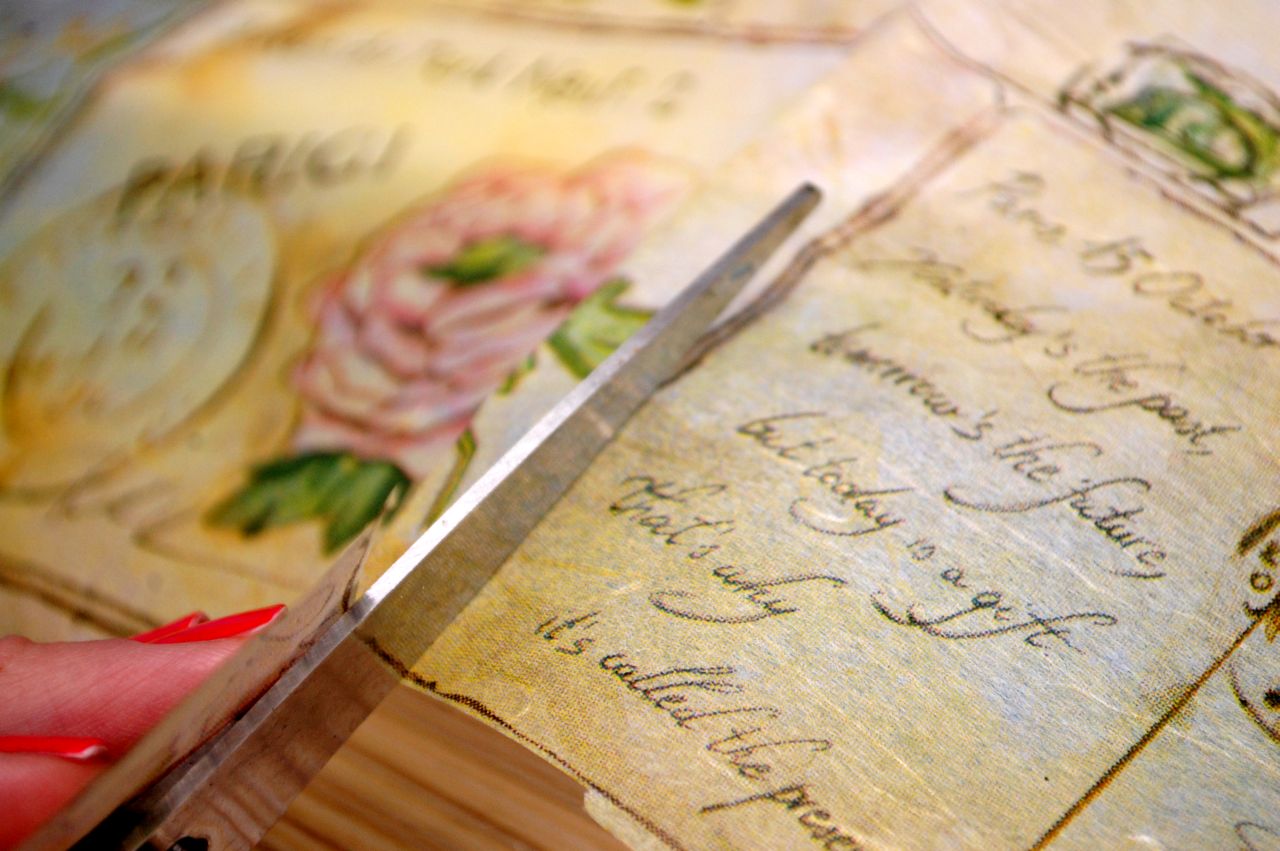 PARIGI
15 Octobe
Yesterday's the past,
tomorrow's the future,
but today is a gift.
that's why
it's called the presen